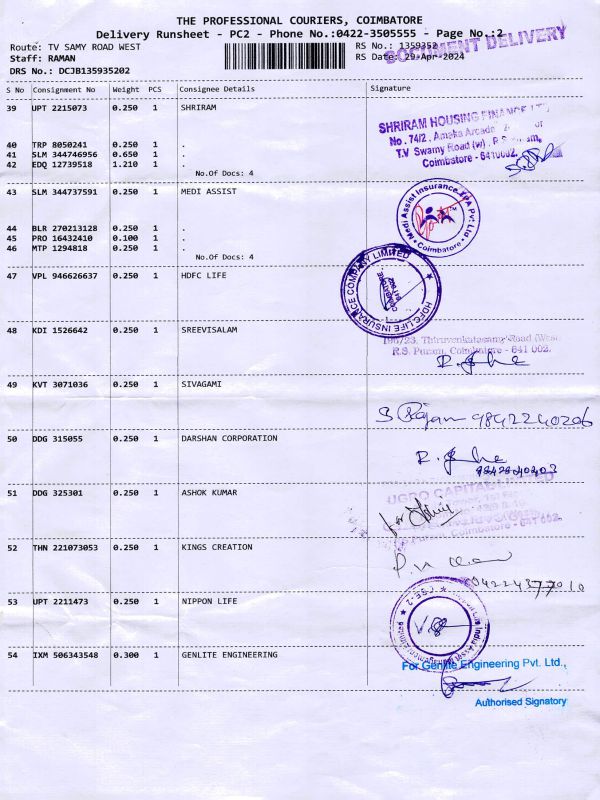 THE PROFESSIONAL COURIERS, COIMBATORE
Delivery Runsheet - PC2 - Phone No.:0422-3505555 - Page No.:2
DOCUMENT DELIVERY
Route: TV SAMY ROAD WEST
RS No.: 1359352
Staff: RAMAN
RS Date: 29-Apr-2024
DRS No.: DCJB135935202
S No Consignment No Weight PCS Consignee Details Signature
39 UPT 2215073 0.250 1 SHRIRAM
SHRIRAM HOUSING FINANCE LTD
No. 74/2, Ameka Arcade
T.V Swamy Road (w), R.S. Puram,
Coimbatore - 641002.
40 TRP 8050241 0.250 1 .
41 SLM 344746956 0.650 1 .
42 EDQ 12739518 1.210 1 .
No.Of Docs: 4
43 SLM 344737591 0.250 1 MEDI ASSIST
Medi Assist Insurance TPA Pvt Ltd
Coimbatore
44 BLR 270213128 0.250 1 .
45 PRO 16432410 0.100 1 .
46 MTP 1294818 0.250 1 .
No.Of Docs: 4
47 VPL 946626637 0.250 1 HDFC LIFE
HDFC LIFE INSURANCE COMPANY LIMITED
COIMBATORE
641 002
48 KDI 1526642 0.250 1 SREEVISALAM
Thiruvenkatasamy Road (West)
R.S. Puram, Coimbatore - 641 002.
49 KVT 3071036 0.250 1 SIVAGAMI
S Rajan 9842240206
50 DDG 315055 0.250 1 DARSHAN CORPORATION
51 DDG 325301 0.250 1 ASHOK KUMAR
UGRO CAPITAL LIMITED
for
52 THN 221073053 0.250 1 KINGS CREATION
53 UPT 2211473 0.250 1 NIPPON LIFE
CSE-2
54 IXM 506343548 0.300 1 GENLITE ENGINEERING
For Genlite Engineering Pvt. Ltd.,
Authorised Signatory